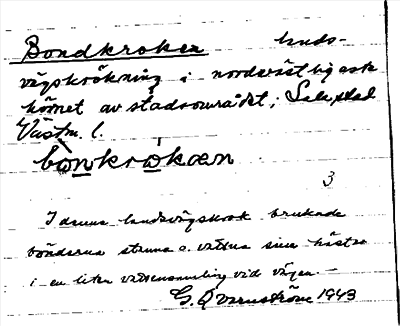 Bondkroken lands-
vägskrökning i nordvästligaste
hörnet av stadsområdet, Sala stad
Västm. l.
bo̱nkro̱kæn
3
I denna landsvägskrok brukade
bönderna stanna o. vattna sina hästar
i en liten vattensamling vid vägen.—
G. Qvarnström 1943